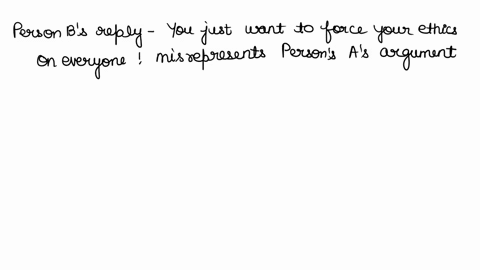 Person B's reply - You just want to force your ethics
on everyone ! misrepresents Person's A's argument